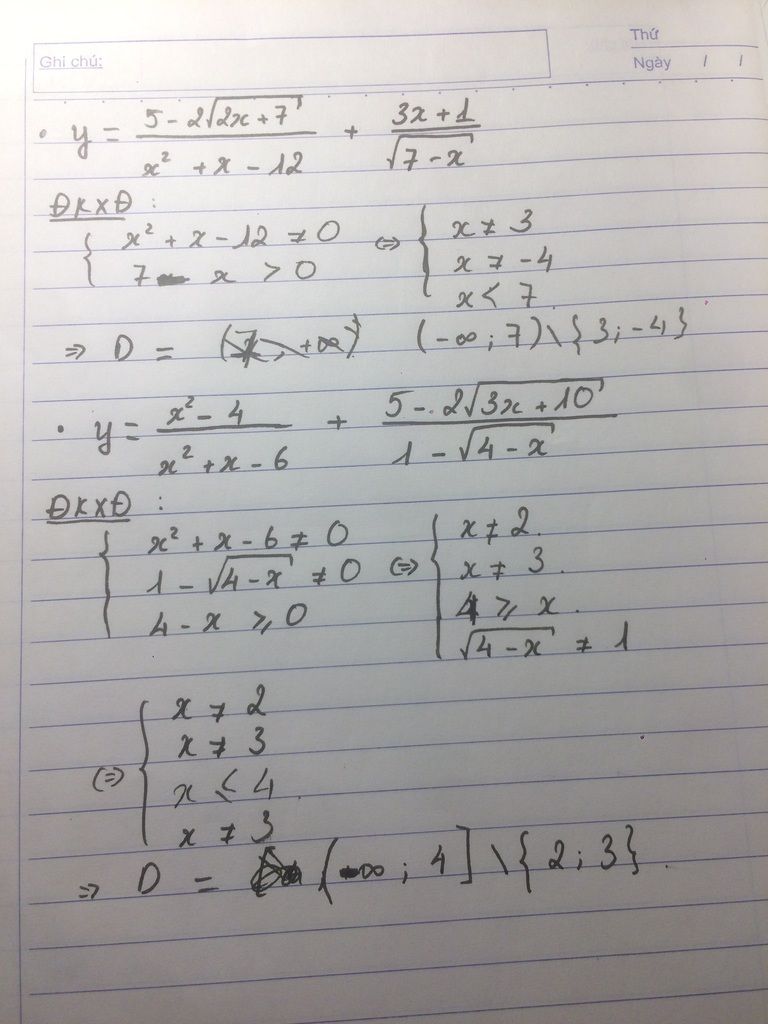 Ghi chú:
Thứ
Ngày / /
• y = (5 - 2√(2x + 7))/(x² + x - 12) + (3x + 1)/√(7 - x)
ĐKXĐ :
{ x² + x - 12 ≠ 0 ⇔ { x ≠ 3
7 - x > 0 x ≠ -4
x < 7
⇒ D = (7; +∞) (-∞; 7) \ {3; -4}
• y = (x² - 4)/(x² + x - 6) + (5 - 2√(3x + 10))/(1 - √(4 - x))
ĐKXĐ :
{ x² + x - 6 ≠ 0 ⇔ { x ≠ 2.
1 - √(4 - x) ≠ 0 x ≠ 3.
4 - x ⩾ 0 4 ⩾ x.
√(4 - x) ≠ 1
⇔ { x ≠ 2
x ≠ 3
x ⩽ 4
x ≠ 3
⇒ D = (-∞; 4] \ {2; 3}.